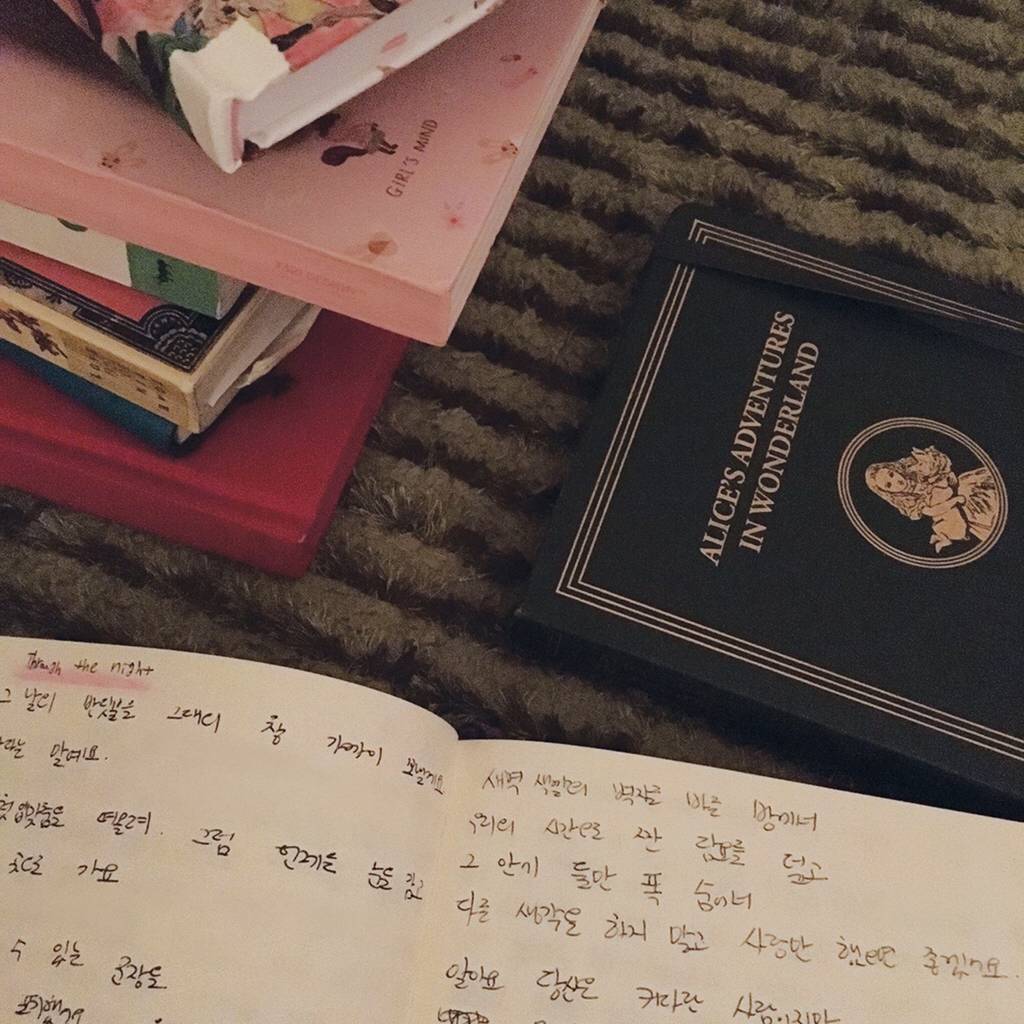 GIRL'S MIND
ALICE'S ADVENTURES
IN WONDERLAND
Through the night
그 날의 반딧불을 그대의 창 가까이 보낼게요
말예요.
첫 입맞춤을 떠올려. 그럼 언제든 눈을 감고
가요
수 있는 문장을
새벽 색깔의 벽지를 바른 방에서
우리의 시간으로 짠 담요를 덮고
그 안에 둘만 푹 숨어서
다른 생각은 하지 말고 사랑만 했으면 좋겠어요.
알아요 당신은 커다란 사람이지만